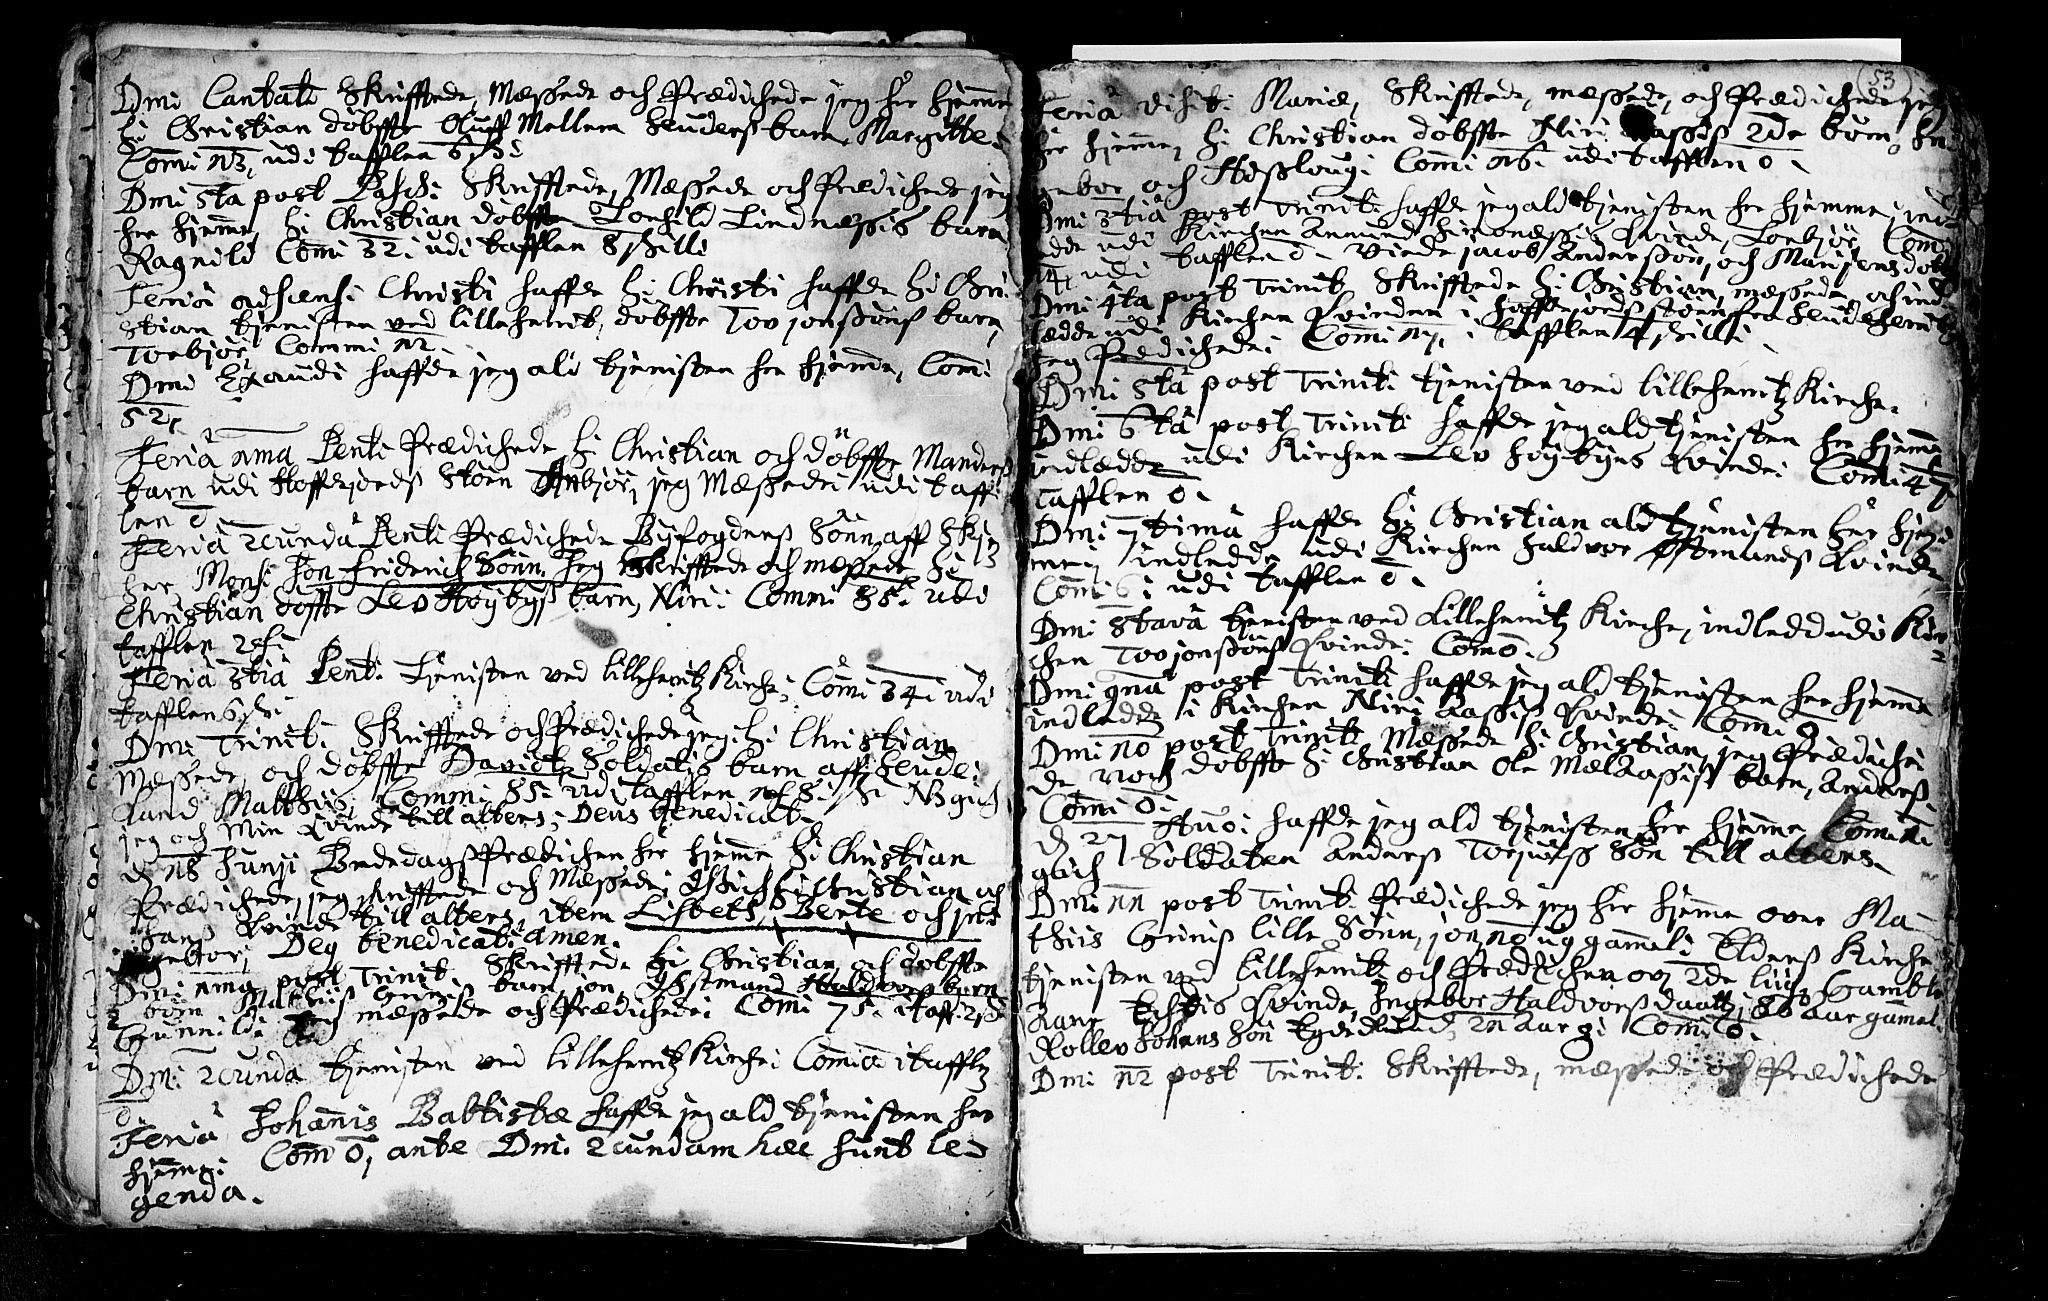 Dmi Cantati Skrifftede, Mæssede och Prædichede jeg her hjemme
h: Christian döbffte Oluff Mellem Seuderss barn, Margitte:
Comi 13, udi tafflen 6 sh:
Dmi 5ta post Pasch: Skrifftede, Mæssede och Prædichede jeg
her hjemme, h: Christian döbffte Torhild Lindnæssis barn
Ragnild Comi 32: udi tafflen 8 skilli
Feriâ adscensi Christi haffde h: Christi haffde h: Chri-
stian tjenisten ved lilleherrit, döbffte Tov jonssönss barn,
Torbjör, Commi 12.
Dmi Exaudi haffde jeg ald tjenisten her hjemme, Comi
52,
Feriâ 1ma Penti Prædichede h: Christian och döbffte Manderss
barn udi Hoffejordss Stöen Anbjör, jeg Mæssede: udi taff-
len 0.
Feriâ 2cunda Penti Prædichede Byfogderss Sönn aff Skj
her, Monsi Jon Friderich Sönn. Jeg Skrifftede och mæssede h:
Christian döffte Lev Höybyss barn, Niri: Commi 85: udi
tafflen 2 sh:
Feriâ 3tiâ Pent: Tjenisten ved lilleherritz Kirche, Comi 34: udi
tafflen 6 sh:
Dmi Trinit: Skrifftede och Prædichede jeg: h: Christian
Mæssede, och döbffte Davidtz Soldatis barn aff Seude:
land Matthis, Commi 85: udi tafflen
jeg och Min Qvinde till alters; Deus benedicat.
d 18 Junji Bededagss Prædichen her hjemme h: Christian
Prædichede, jeg skrifftede och Mæssede; Gich h: Christian oc
hans Qvinde till alters, item Lisbeth, Bente och
Ingebor, Deg benedicat: amen.
Dmi 1ma post Trinit. Skrifftede h: Christian och döbffte
Matthiss barn, jon, Östmand Haldvorss barn
Gunnild: Jeg mæssede och Prædichede: Comi 75: i taff: 2 sh
Dmi 2cunda tjenisten ved lilleherritz Kirche: Comi 0 i tafflen
0.
Feriâ Johannis Babtistæ haffde jeg ald tjenisten her
hjemme: Com 0, ante Dmi 2cundam hæc sunt le-
genda.
53
Feriâ visit: Mariæ, Skrifftede, mæssede, och Prædichede jeg
her hjemme, h: Christian döbffte Niri Aassiss 2de börn,
gebor och Assloug: Comi 16: udi tafflen 0.
Dmi 3tiâ post Trinit: haffde jeg ald tjenisten her hjemme, ind-
ledde udi Kirchen Amund Simonæssis Qvinde, Torbjör, Com:
14, udi tafflen 0. Viede jacob Anderssön, och Mari jensdotter
Dmi 4ta post Trinit: Skrifftede h: Christian, mæssede, och ind-
ledde udi Kirchen Qvinden i Hoffejordsstöen
jeg Prædichede: Comi 17, i tafflen 4 skilli.
Dmi 5tâ post Trinit: tjenisten ved lilleherritz Kirche.
Dmi 6tâ post Trinit: haffde jeg ald tjenisten her hjemme,
indledde udi Kirchen Lev Höybyes Qvinde: Comi 47
tafflen 0.
Dmi 7timâ haffde h: Christian ald tjenisten her hjem-
me, indledde udi Kirchen Haldvor Östmands Qvinde,
Comi 6: udi tafflen 0.
Dmi 8tava tjenisten ved Lilleherritz Kirche, indledd udi Kir-
chen Tovjonssönss Qvinde: Com 0.
Dmi 9na post Trinit: haffde jeg ald tjenisten her hjemme
indledde i Kirchen Niri Aassiss Qvinde: Com:
Dmi 10 post Trinit: Mæssede h: Christian, jeg Prædiche-
de, och döbffte h: Christian Ole Mælaassiss barn, Anderss
Comi 0.
d 27 haffde jeg ald tjenisten her hjemme Com:
gich Soldaten Anderss Torjuss Sön till alters.
Dmi 11 post Trinit: Prædichede jeg her hjemme over Ma-
this lille Sönn, jon, 10 ug gammel: Elderss Kirche
tjenisten ved lilleherritz och Prædichen ov: 2de liig, Gamble
Qvinde, Ingebor Haldvorssdaatter, 86 aar gammel,
Rollev Johans Sön 21 aar: Com 0.
Dmi 12 post Trinit: Skrifftede, mæssede och Prædichede